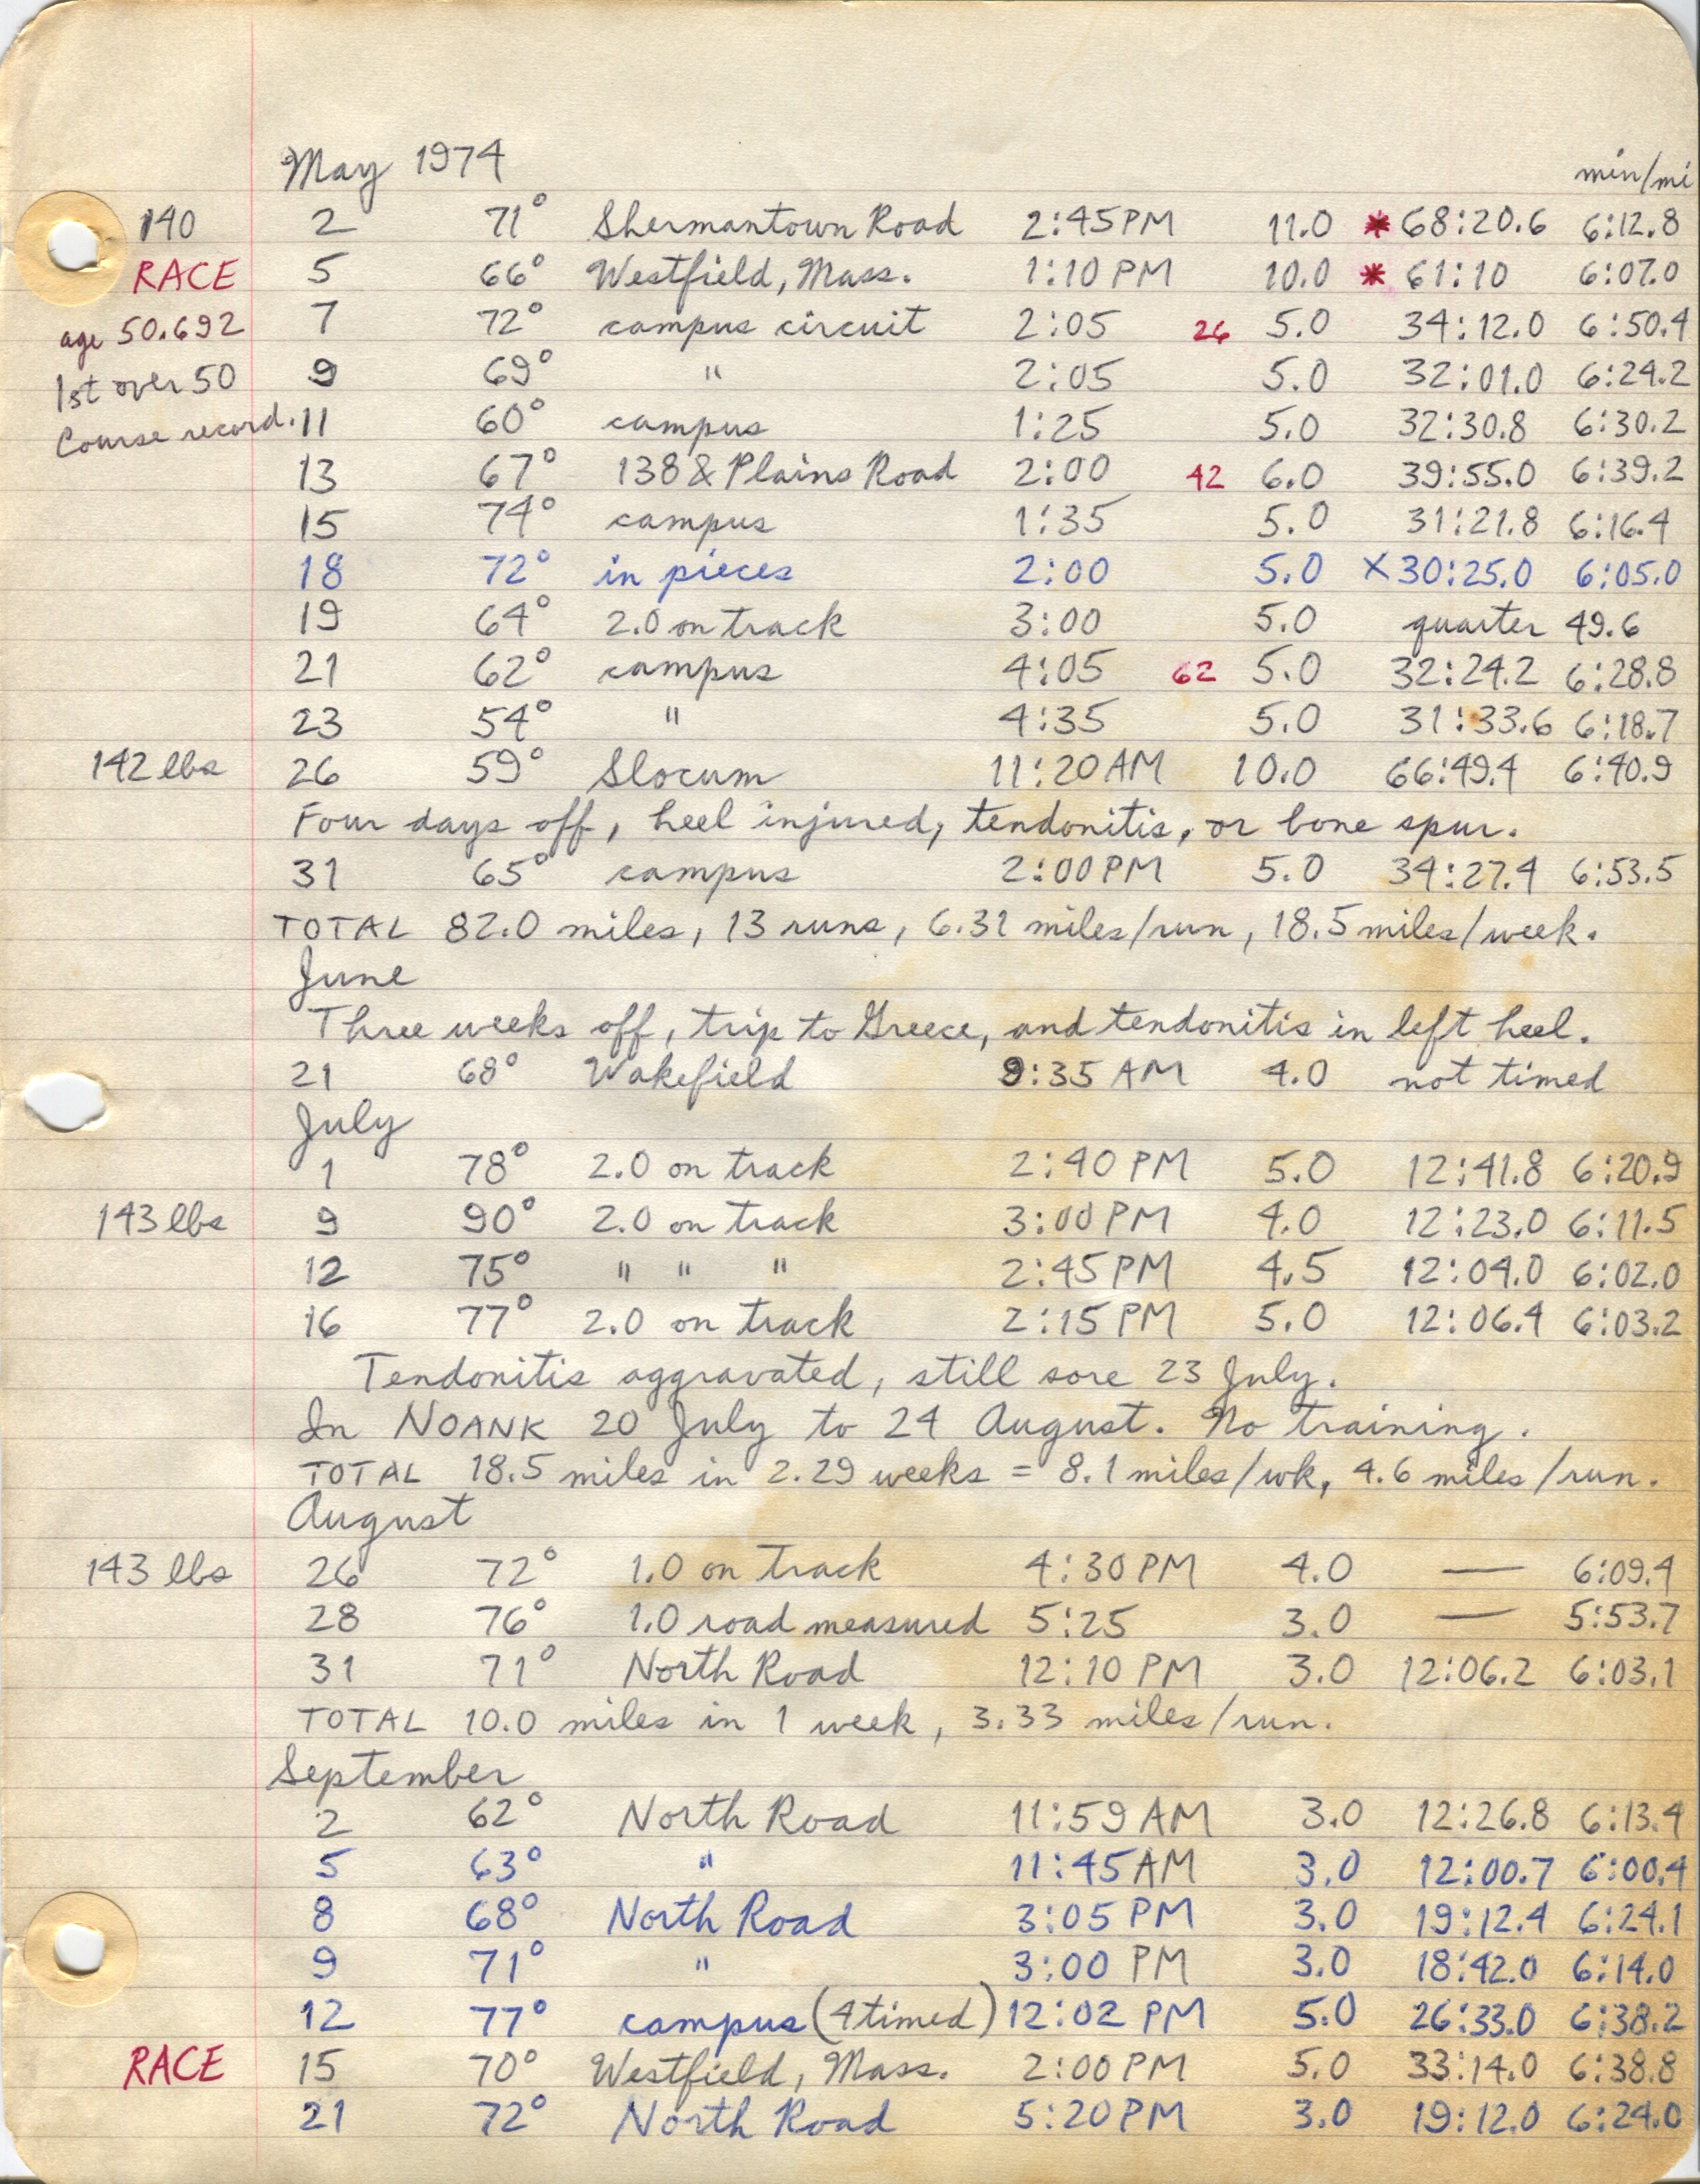 May 1974 min/mi
140 2 71° Shermantown Road 2:45PM 11.0 * 68:20.6 6:12.8
RACE 5 66° Westfield, Mass. 1:10 PM 10.0 * 61:10 6:07.0
age 50.692 7 72° campus circuit 2:05 26 5.0 34:12.0 6:50.4
1st over 50 9 69° " 2:05 5.0 32:01.0 6:24.2
Course record. 11 60° campus 1:25 5.0 32:30.8 6:30.2
13 67° 138 & Plains Road 2:00 42 6.0 39:55.0 6:39.2
15 74° campus 1:35 5.0 31:21.8 6:16.4
18 72° in pieces 2:00 5.0 X 30:25.0 6:05.0
19 64° 2.0 on track 3:00 5.0 quarter 49.6
21 62° campus 4:05 62 5.0 32:24.2 6:28.8
23 54° " 4:35 5.0 31:33.6 6:18.7
142 lbs 26 59° Slocum 11:20AM 10.0 66:49.4 6:40.9
Four days off, heel injured, tendonitis, or bone spur.
31 65° campus 2:00PM 5.0 34:27.4 6:53.5
TOTAL 82.0 miles, 13 runs, 6.31 miles/run, 18.5 miles/week.
June
Three weeks off, trip to Greece, and tendonitis in left heel.
21 68° Wakefield 9:35 AM 4.0 not timed
July
1 78° 2.0 on track 2:40 PM 5.0 12:41.8 6:20.9
143 lbs 9 90° 2.0 on track 3:00 PM 4.0 12:23.0 6:11.5
12 75° " " " 2:45 PM 4.5 12:04.0 6:02.0
16 77° 2.0 on track 2:15 PM 5.0 12:06.4 6:03.2
Tendonitis aggravated, still sore 23 July.
In NOANK 20 July to 24 August. No training.
TOTAL 18.5 miles in 2.29 weeks = 8.1 miles/wk, 4.6 miles/run.
August
143 lbs 26 72° 1.0 on track 4:30 PM 4.0 — 6:09.4
28 76° 1.0 road measured 5:25 3.0 — 5:53.7
31 71° North Road 12:10 PM 3.0 12:06.2 6:03.1
TOTAL 10.0 miles in 1 week, 3.33 miles/run.
September
2 62° North Road 11:59 AM 3.0 12:26.8 6:13.4
5 63° " 11:45 AM 3.0 12:00.7 6:00.4
8 68° North Road 3:05 PM 3.0 19:12.4 6:24.1
9 71° " 3:00 PM 3.0 18:42.0 6:14.0
12 77° campus (4 timed) 12:02 PM 5.0 26:33.0 6:38.2
RACE 15 70° Westfield, Mass. 2:00 PM 5.0 33:14.0 6:38.8
21 72° North Road 5:20 PM 3.0 19:12.0 6:24.0